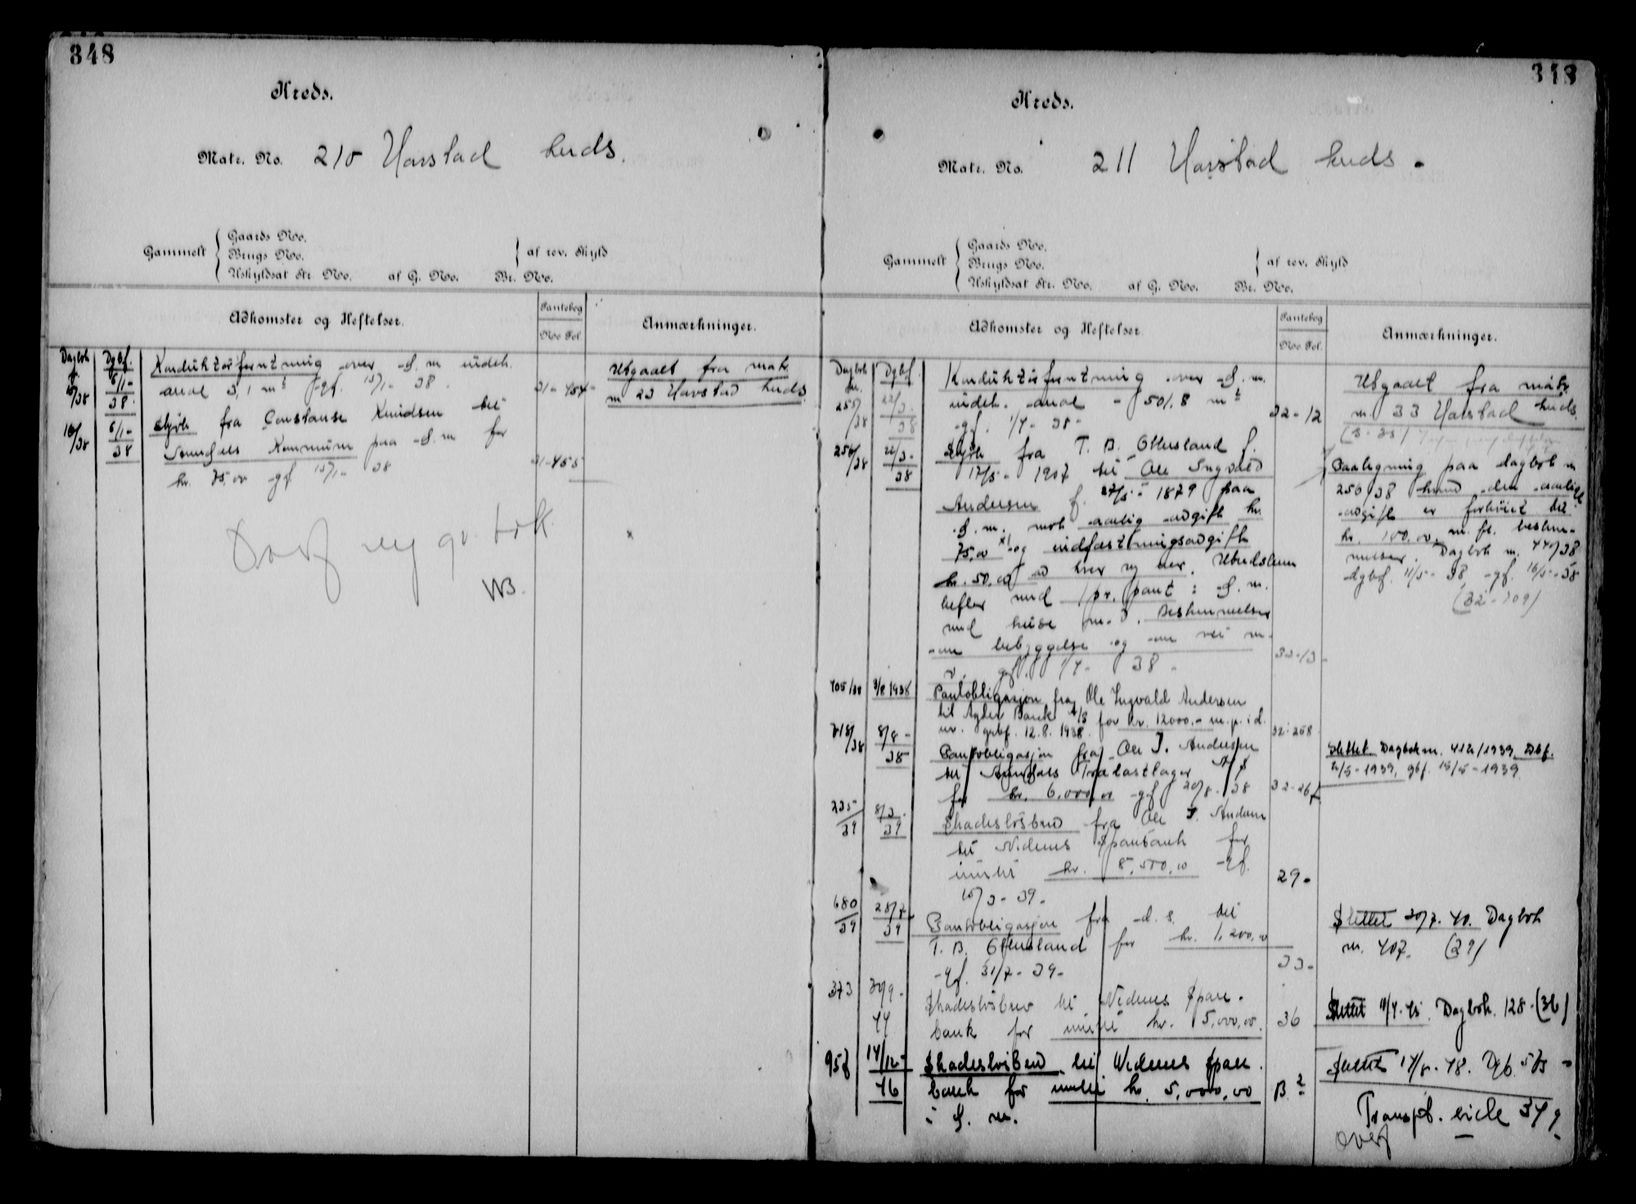 348
Kreds.
Matr. No. 210 Harstad kreds.
Gammelt
Gaards No.
Brugs No.
Uskyldsat Nr. No. af G. No. Br. No.
af rev. Skyld
Adkomster og Heftelser.
Pantebog
No Fol.
Anmærkninger.
Dagbok Dgbf.
Konduktørforretning over d. m. indeh.
areal 3,1 m² gf. 15/1- 38.
31-454-
Utgaaet fra matr.
nr 23 Harstad kreds.
16/38 6/1-38
Skjøte fra Constanse Knudsen til
Kommune paa d. m. for
kr. 75,00 gf 15/1- 38
31-455
Overf ny gr. bok
348
Kreds.
Matr. No. 211 Harstad kreds.
Gammelt
Gaards No.
Brugs No.
Uskyldsat Nr. No. af G. No. Br. No.
af rev. Skyld
Adkomster og Heftelser.
Pantebog
No Fol.
Anmærkninger.
Dagbok nr. Dgbf.
255/38 22/3-38
Konduktørforretning over d. m.
indeh. areal - 501.8 m²
gf. 1/4- 38-
32-12
Utgaaet fra matr.
nr. 33 Harstad kreds
256/38 22/3-38
Skjøte fra T. B. Otterstad f.
17/5- 1907 til Ole Ingvald
Andersen f. 27/5- 1879 paa
d. m. mot aarlig avgift kr.
75,00 x) og indfæstningsavgift
kr. 50,00 ad hver ny eier. Utendslsum
hefter med 1 pr. pant i d. m.
med huse m. v. Bestemmelser
om bebyggelse og om vei m.
v. gf. 1/4- 38-
32-13-
Paategning paa dagbok nr
256/38 hvad den aarlige
avgift er forhøiet til
kr. 100,00, m. fl. bestem-
melser. Dagbok nr. 440/38
dgbf. 11/5- 38, gf. 16/5-38
(32-109)
705/38 3/8 1938
Pantobligasjon fra Ole Ingvald Andersen
til Agder Bank A/S for kr. 12000,- m. p. i d.
nr. gbf. 12.8.1938.
32-258
718/38 8/8-38
Pantobligasjon fra Ole I. Andersen
til Arendals Trælastlager A/S
for kr. 6.000,00 gf 20/8-38
32-26
Slettet Dagboknr. 412/1939 Dbf.
2/5-1939, gbf. 15/5-1939.
225/39 8/3-39
Skadesløsbrev fra Ole I. Andersen
til Nedenes Sparebank for
inntil kr. 8.500,00 gf.
15/3-39-
29-
680/39 28/7-39
Pantobligasjon fra d. s. til
T. B. Otterstad for kr. 1.200,00
gf. 31/7-39-
33-
Slettet 20/7.40. Dagbok
nr. 407. (39)
373 30/9-44
Skadesløsbrev til Nedenes Spare-
bank for inntil kr. 5.000,00.
36
Slettet 11/4-45. Dagbok. 128-(36)
958 14/12-46
Skadesløsbrev til Nedenes Spare-
bank for inntil kr. 5.000,00
i d. nr.
B 2
Slettet 14/8-48. Dgb. 573-
Transpt. side 349
overf